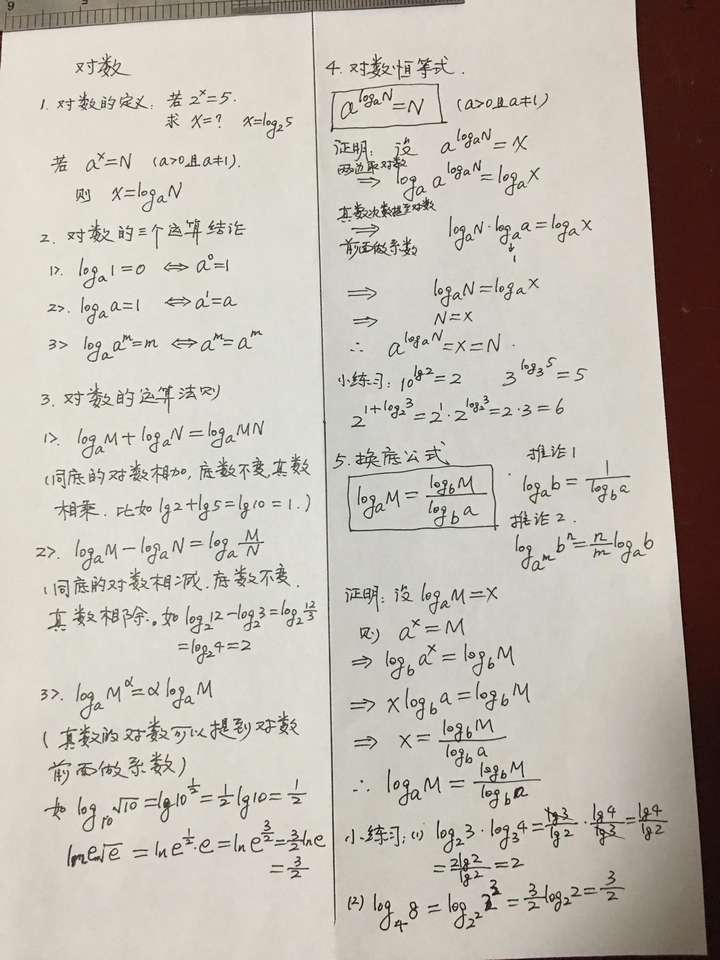 对数
1. 对数的定义: 若 2ˣ=5.
求 x=? x=log₂5
若 aˣ=N (a>0且a≠1).
则 x=logₐN
2. 对数的三个运算结论
1>. logₐ1=0 ⇔ a⁰=1
2>. logₐa=1 ⇔ a¹=a
3> logₐaᵐ=m ⇔ aᵐ=aᵐ
3. 对数的运算法则
1>. logₐM+logₐN=logₐMN
(同底的对数相加, 底数不变, 真数
相乘. 比如 lg2+lg5=lg10=1.)
2>. logₐM-logₐN=logₐ(M/N)
(同底的对数相减, 底数不变,
真数相除. 如 log₂12-log₂3=log₂(12/3)
=log₂4=2
3>. logₐM^α=αlogₐM
(真数的对数可以提到对数
前面做系数)
如 log₁₀√10=lg10^(1/2)=1/2 lg10=1/2
lne√e=lne^(1/2)·e=lne^(3/2)=3/2 lne
=3/2
4. 对数恒等式.
a^(logₐN)=N (a>0且a≠1)
证明: 设 a^(logₐN)=x
两边取对数
⇒ logₐa^(logₐN)=logₐx
真数次数提至对数
⇒ logₐN·logₐa=logₐx
前面做系数 ↓
1
⇒ logₐN=logₐx
⇒ N=x
∴ a^(logₐN)=x=N.
小练习: 10^(lg2)=2 3^(log₃5)=5
2^(1+log₂3)=2¹·2^(log₂3)=2·3=6
5. 换底公式
logₐM=log_bM/log_ba
推论1
logₐb=1/log_ba
推论2.
log_(aᵐ)bⁿ=n/m logₐb
证明: 设 logₐM=x
则 aˣ=M
⇒ log_b aˣ=log_bM
⇒ xlog_ba=log_bM
⇒ x=log_bM/log_ba
∴ logₐM=log_bM/log_ba
小练习: (1) log₂3·log₃4=lg3/lg2·lg4/lg3=lg4/lg2
=2lg2/lg2=2
(2) log₄8=log_(2²)2³=3/2 log₂2=3/2